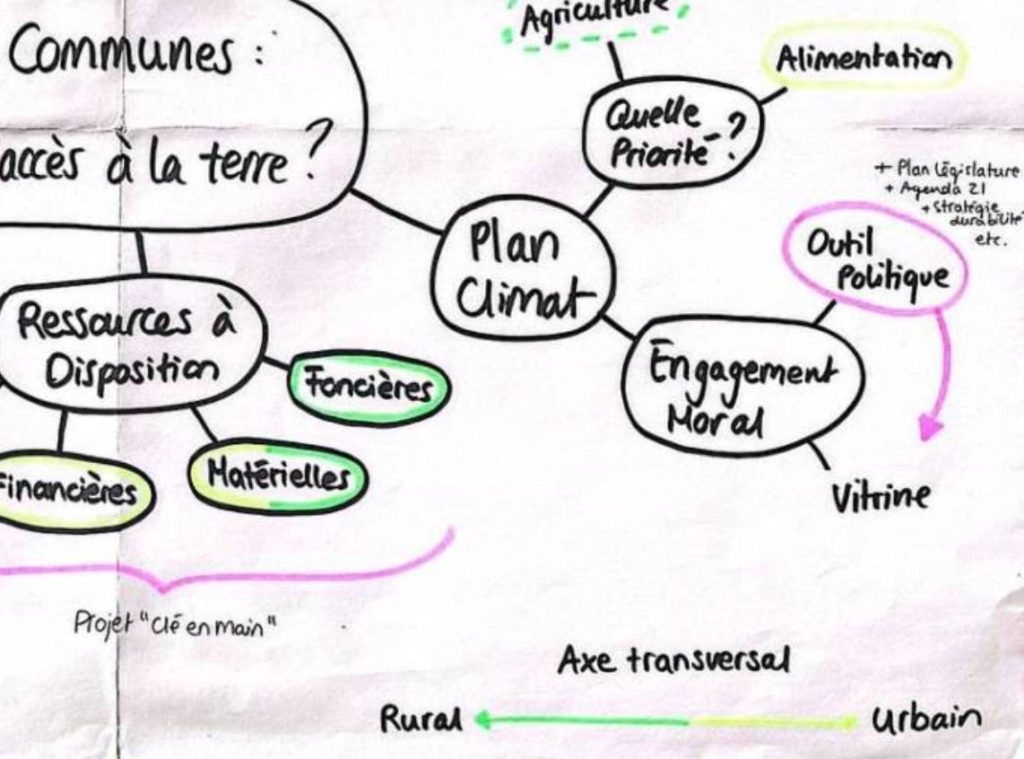 Communes :
accès à la terre ?
Agriculture
Alimentation
Quelle
Priorité ?
+ Plan Législature
+ Agenda 21
+ stratégie
durabilité
etc.
Plan
Climat
Outil
Politique
Ressources à
Disposition
Foncières
Engagement
Moral
Financières
Matérielles
Vitrine
Projet "clé en main"
Axe transversal
Rural
Urbain